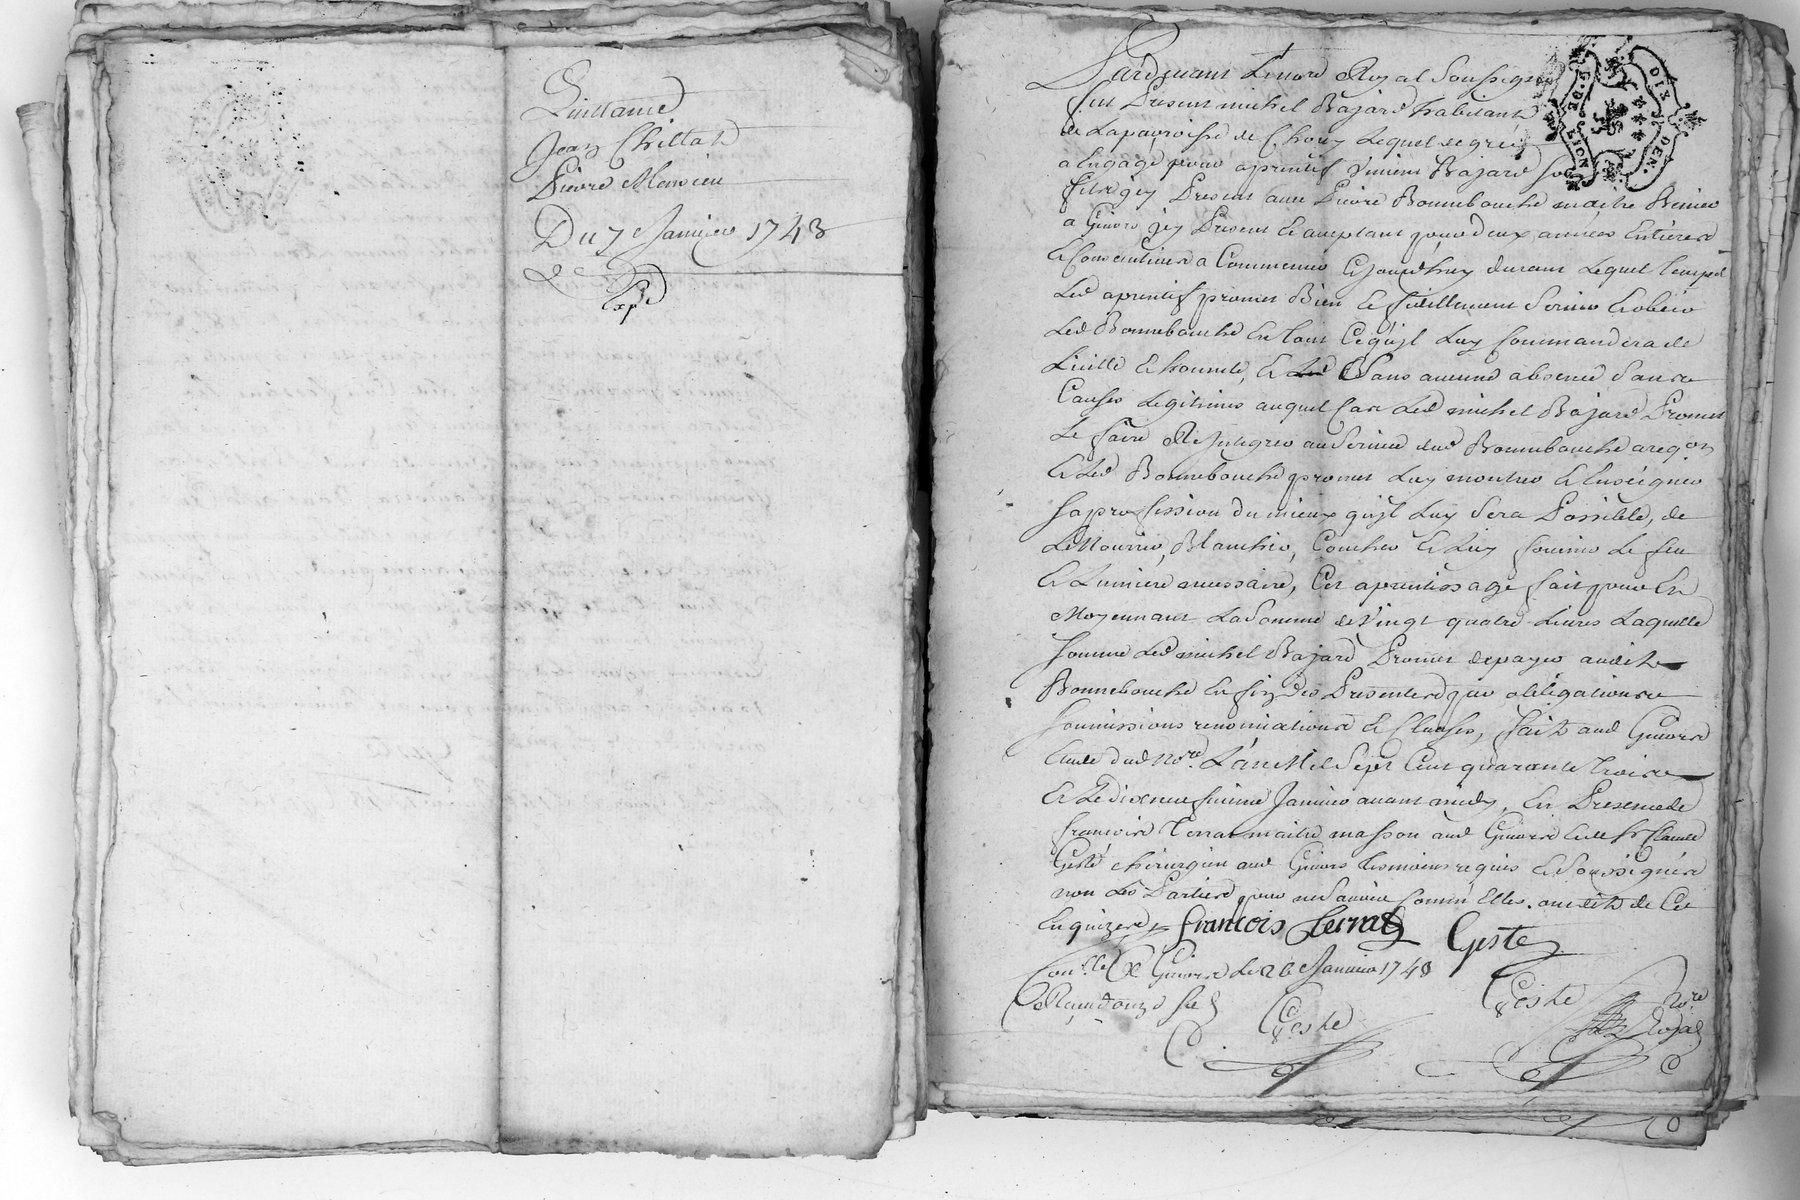 Quittance
Jean Chillat
Pierre Monsieu
Du 7e Janvier 1743
Expd
Pardevant Le nore Royal Soussigné
fut Present michel Bajard habitant
de La parroisse de Chouy Lequel de gré
a Engagé pour aprentif Bajard son
fils jcy Present avec Pierre Bonnebouche maitre
a Givors jcy Present et acceptant pour deux années Entieres
et Consecutives a Commencer Cejourdhuy durant Lequel temps
Led aprentif promet Bien et fidellement Servir et obeir
Led Bonnebouche En tout Cequjl Luy Commandera de
Licitte et honnete, et Sans aucune absence Sans
Causes Legitimes auquel Cas Led michel Bajard Promet
Le faire Rejntegrer au Service dud Bonnebouche
et Led Bonnebouche promet Luy montrer et Enseigner
sa profession du mieux qujl Luy Sera Possible, de
Le Nourrir, Blanchir, Coucher et Luy fournir Le feu
et Lumiere necessaire, Cet aprentissage fait pour et
Moyennant La Somme de Vingt quatre Livres Laquelle
somme Led michel Bajard Promet de payer audit
Bonnebouche En fin des Presentes par obligations
soumissions renonciations et Clauses, fait aud Givors
Etude dud Nore. L'an Mil Sept Cent quarante trois
et Le dixneufvieme Janvier avant midy, En Presence de
francois Terra maitre masson aud Givors et de sr Claude
Geste chirurgien aud Givors temoins requis et Soussignés
non Les Parties pour ne Scavoir Comm'Elles ont dit de Ce
Enquizes
francois terrat Geste
Conllé a Givors Le 26 Janvier 1743
Reçu douze sols
Geste
Geste
Nore
Royal
G. DE LION
DIX DEN.